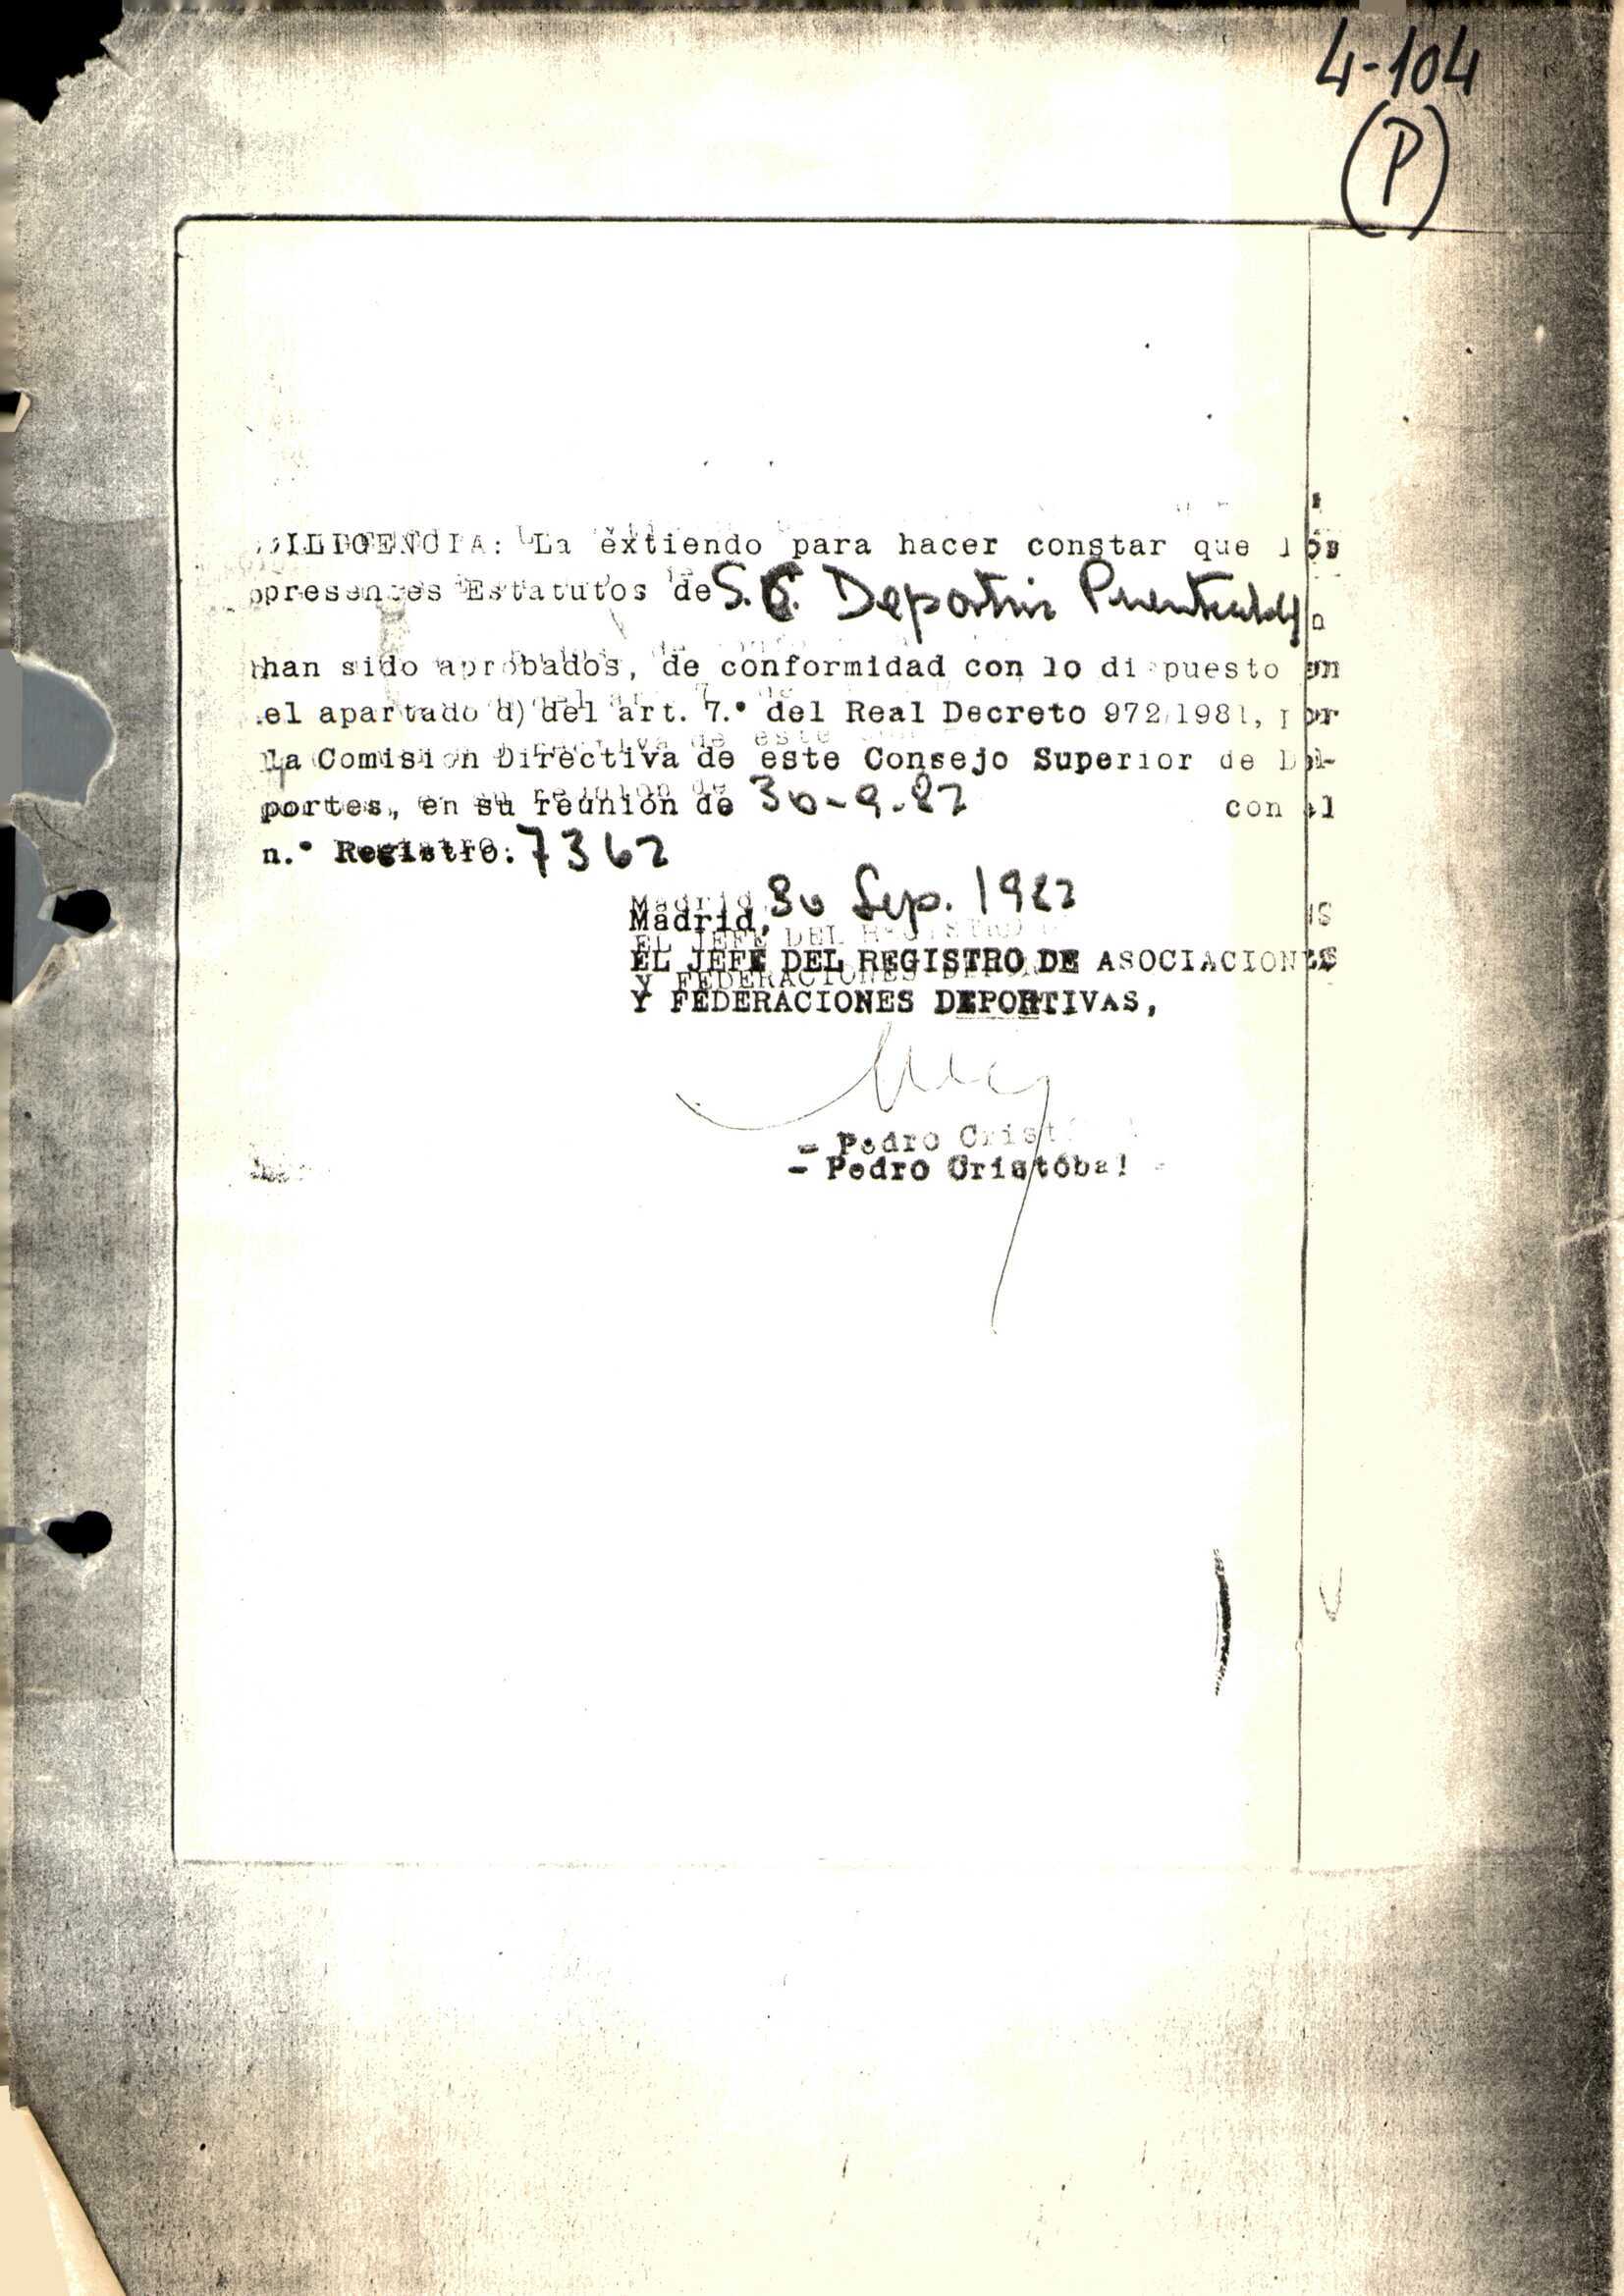 4-104
(P)
DILIGENCIA: La extiendo para hacer constar que los
presentes Estatutos de S.C. Deportiva
han sido aprobados, de conformidad con lo dispuesto en
el apartado d) del art. 7.º del Real Decreto 972/1981, por
la Comisión Directiva de este Consejo Superior de De-
portes, en su reunión de 30-9-82 con el
n.º Registro: 7362
Madrid, 30 Sep. 1982
EL JEFE DEL REGISTRO DE ASOCIACIONES
Y FEDERACIONES DEPORTIVAS,
- Pedro Cristóbal -